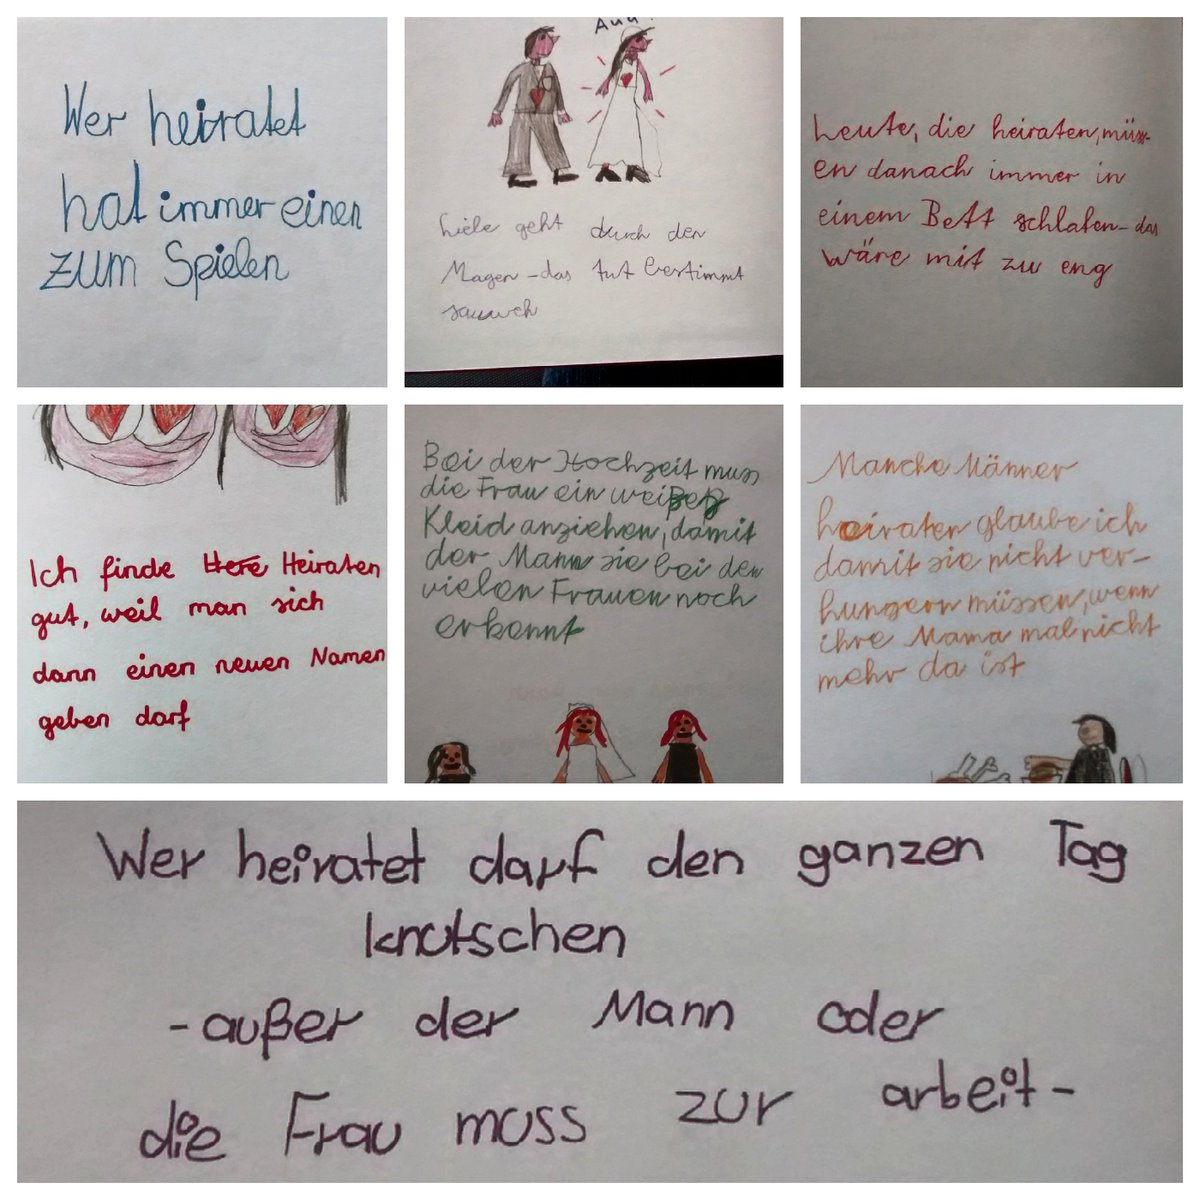 Wer heiratet
hat immer einen
zum Spielen
Aua!
Liebe geht durch den
Magen – das tut bestimmt
sauweh
Leute, die heiraten, müss-
en danach immer in
einem Bett schlafen – das
wäre mit zu eng
Ich finde Here Heiraten
gut, weil man sich
dann einen neuen Namen
geben darf
Bei der Hochzeit muss
die Frau ein weißes
Kleid anziehen, damit
der Mann sie bei den
vielen Frauen noch
erkennt
Manche Männer
heiraten glaube ich
damit sie nicht ver-
hungern müssen, wenn
ihre Mama mal nicht
mehr da ist
Wer heiratet darf den ganzen Tag
knutschen
- außer der Mann oder
die Frau muss zur arbeit -